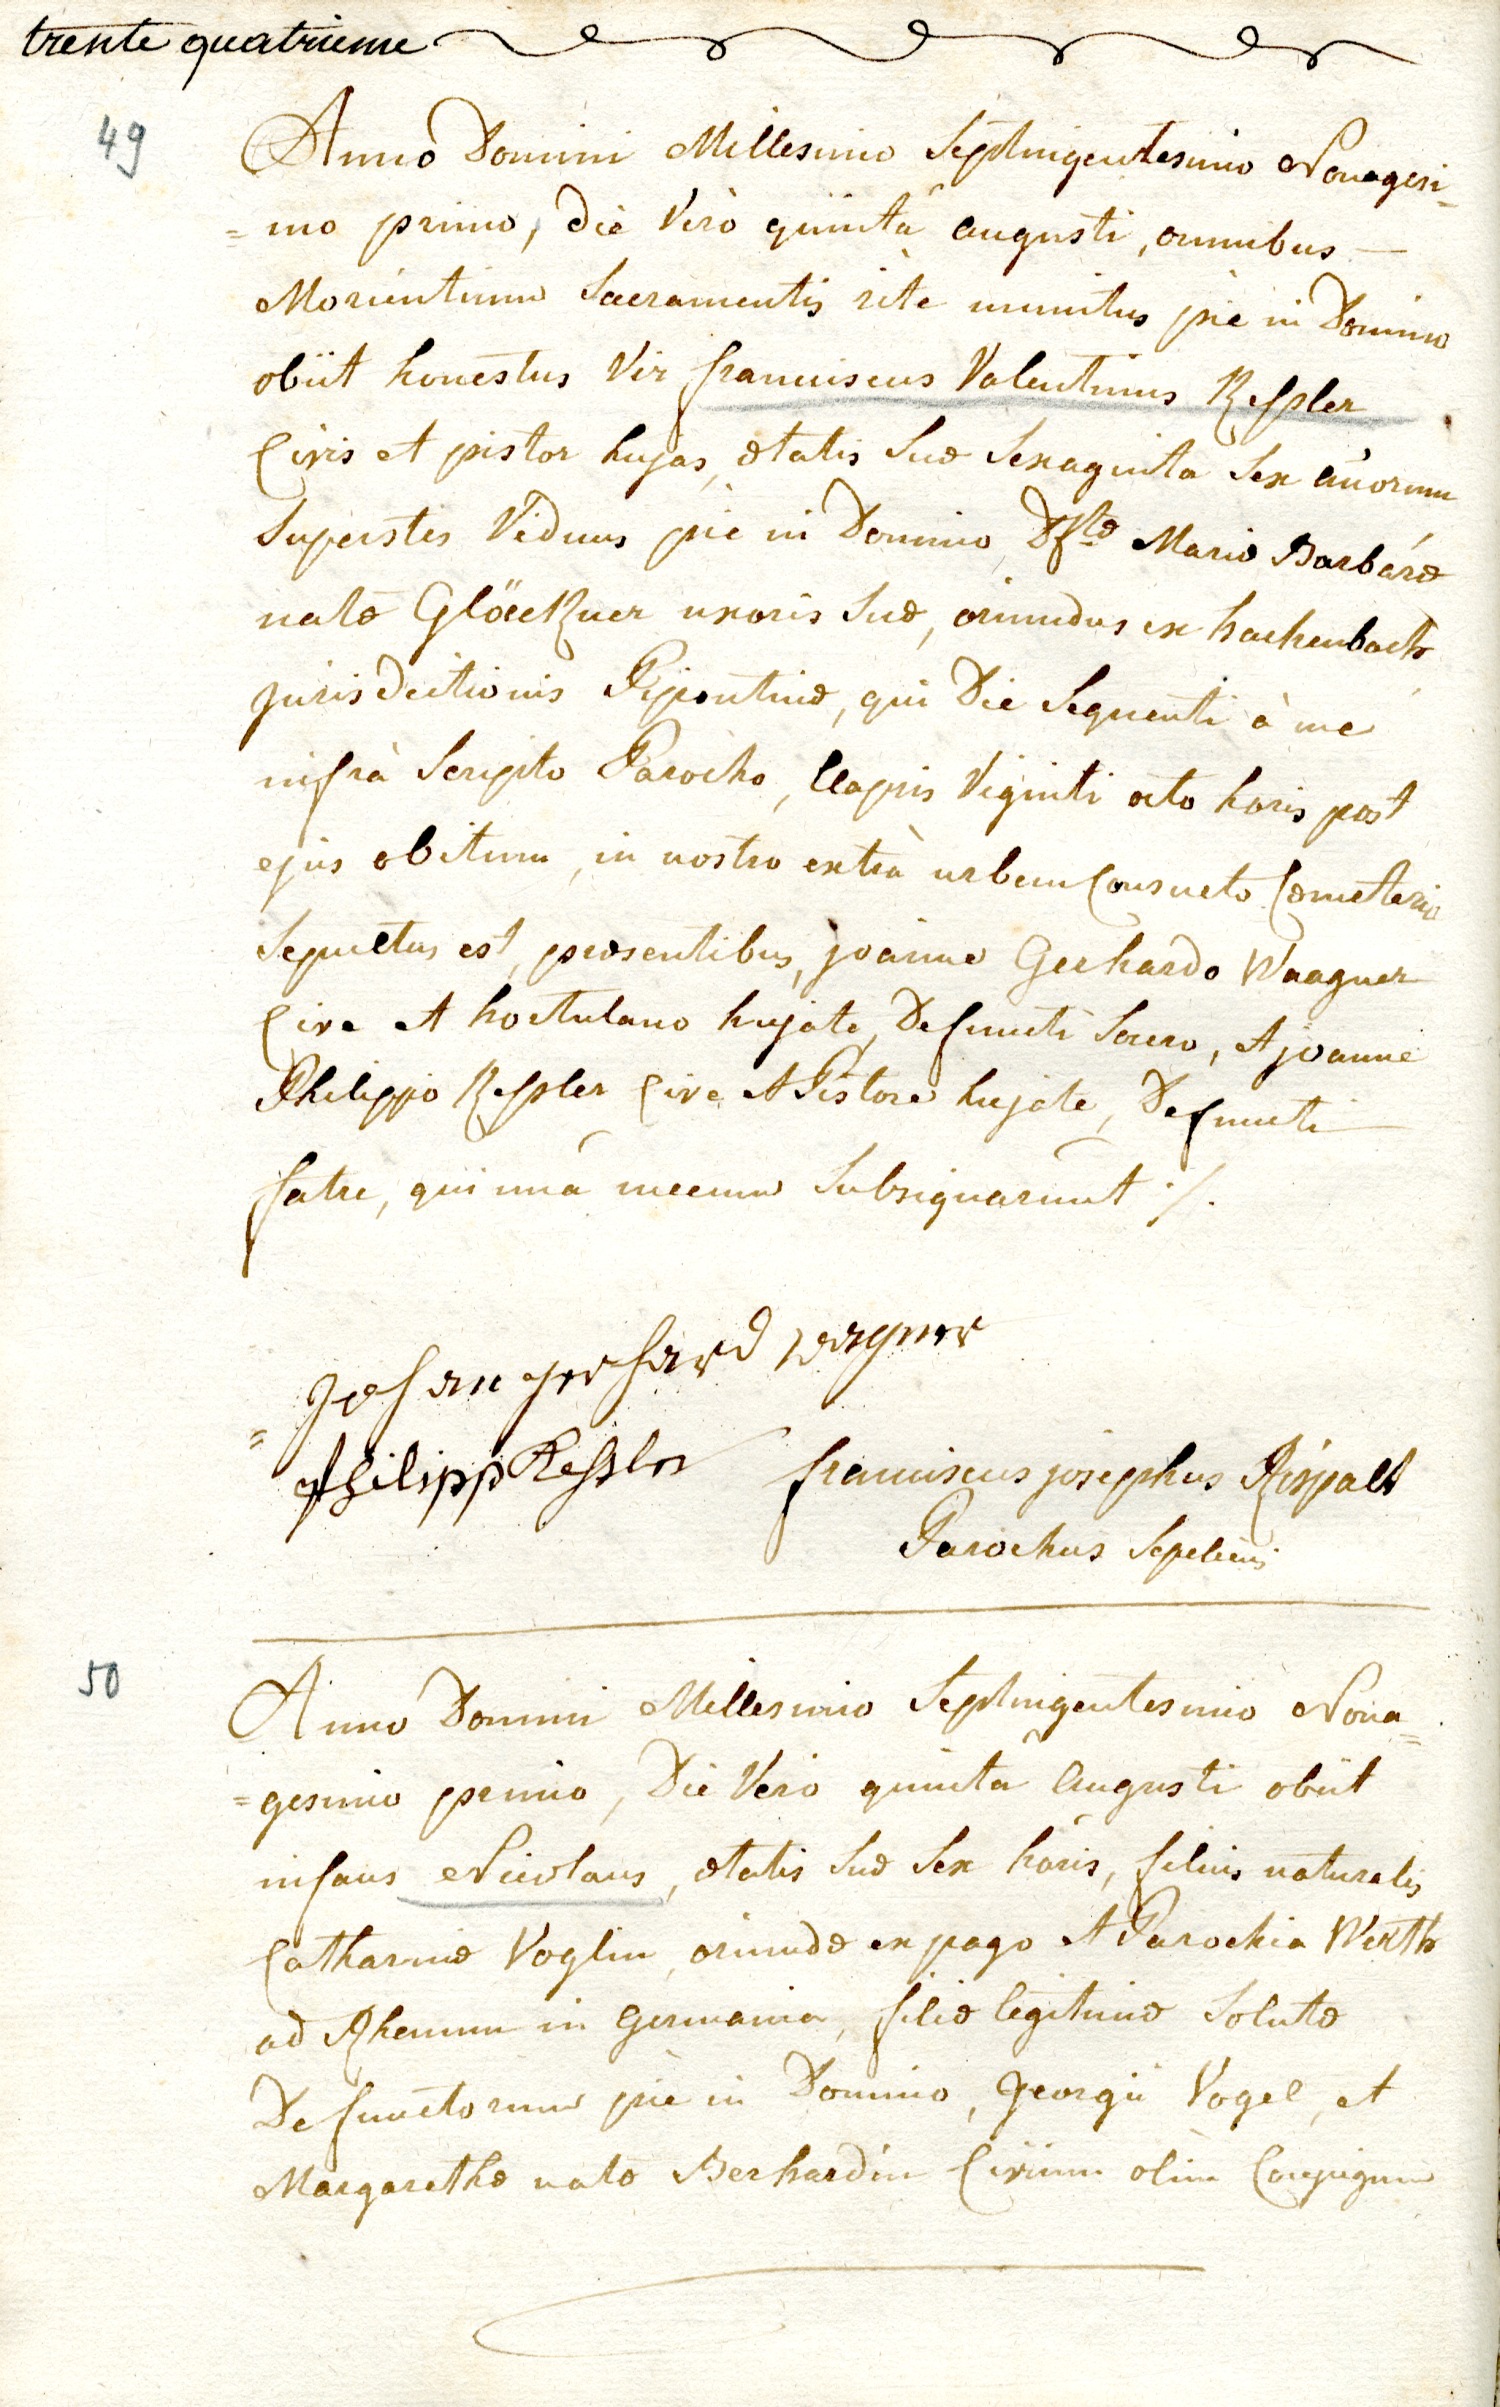 trente quatrieme
49
Anno Domini Millesimo Septingentesimo Nonagesi-
= mo primo, die Verò quintâ augusti, omnibus —
Morientium Sacramentis rite munitus piè in Domino
obiit honestus Vir franciscus Valentinus Keſsler
Civis et pistor hujas, ætatis Suæ Sexaginta Sex añorum
Superstes Viduus piè in Domino Dfctæ Mariæ Barbaræ
natæ Glöeckner uxoris Suæ, oriundus ex hachenbach
jurisdictionis Bipontinæ, qui Die Sequenti à me
infrà Scripto Parocho, Elapsis Viginti octo horis post
ejus obitum, in nostro extrà urbem Consueto Cœmeterio
Sepultus est, præsentibus, joanne Gerhardo Waagner
Cive et hortulano hujate, Defuncti Socero, et joanne
Philippo Keſsler Cive et Pistore hujate, Defuncti
fatre, qui unâ mecum Subsignarunt ./.
Johan gerhard wagner
= Philipp Keſsler
franciscus josephus Rispalt
Parochus Sepeliens
50
Anno Domini Millesimo Septingentesimo Nona=
= gesimo primo, Die Verò quintâ Augusti obiit
infans Nicolaus, ætatis Suæ Sex horis, filius naturalis
Catharinæ Voglin, oriundæ ex pago et Parochia Werth
ad Rhenum in Germania, filiæ legitimæ Solutæ
Defunctorum piè in Domino, Georgii Vogel, et
Margarethæ natæ Berhardin Civium olim Conjugum